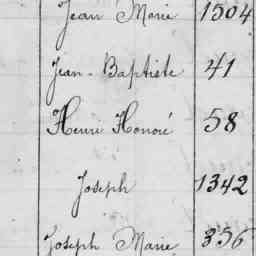 Jean Marie 1504
Jean-Baptiste 41
Henri Honoré 58
Joseph 1342
Joseph Marie 356